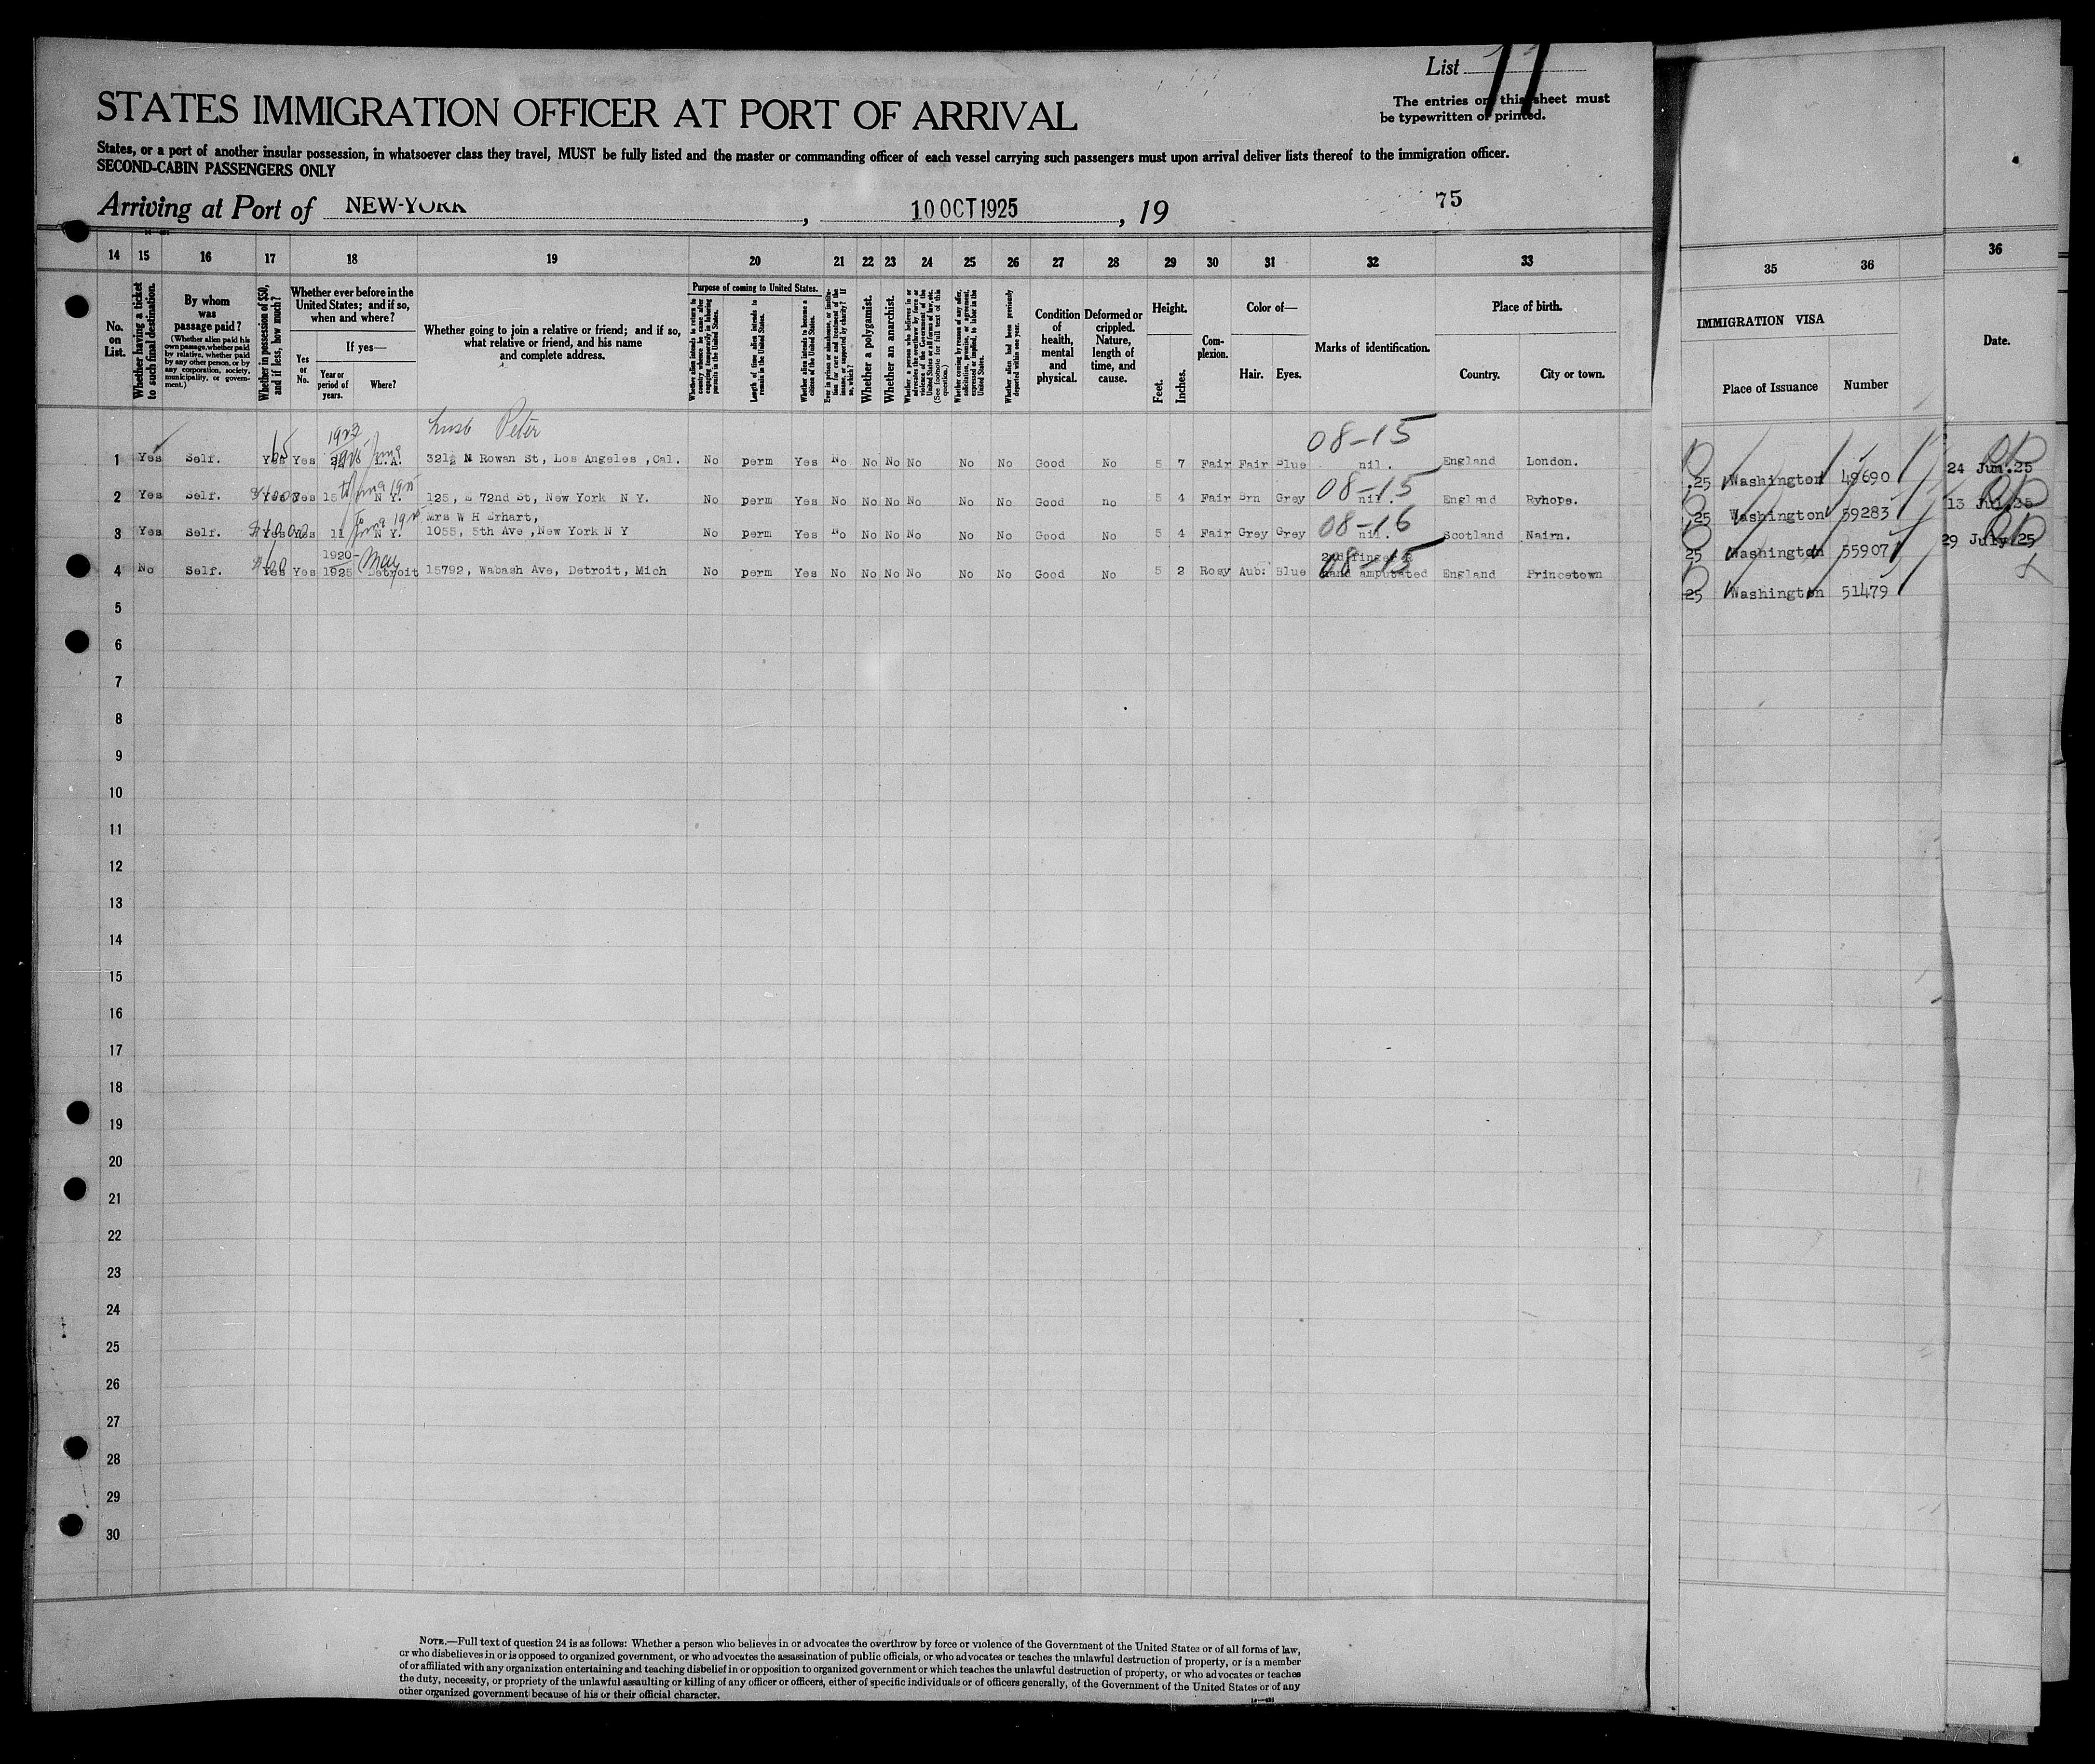 List 11
STATES IMMIGRATION OFFICER AT PORT OF ARRIVAL
The entries on this sheet must
be typewritten or printed.
States, or a port of another insular possession, in whatsoever class they travel, MUST be fully listed and the master or commanding officer of each vessel carrying such passengers must upon arrival deliver lists thereof to the immigration officer.
SECOND-CABIN PASSENGERS ONLY
Arriving at Port of NEW-YORK, 10 OCT 1925, 19
75
14 15 16 17 18 19 20 21 22 23 24 25 26 27 28 29 30 31 32 33 35 36 36
No. on List.
Whether having a ticket to such final destination.
By whom was passage paid?
(Whether alien paid his own passage, whether paid by relative, whether paid by any other person, or by any corporation, society, municipality, or government.)
Whether in possession of $50, and if less, how much?
Whether ever before in the United States; and if so, when and where?
Yes or No.
If yes—
Year or period of years.
Where?
Whether going to join a relative or friend; and if so, what relative or friend, and his name and complete address.
Purpose of coming to United States.
Whether alien intends to return to country whence he came after engaging temporarily in laboring pursuits in the United States.
Length of time alien intends to remain in the United States.
Whether alien intends to become a citizen of the United States.
Ever in prison or almshouse, or institution for care and treatment of the insane, or supported by charity? If so, which?
Whether a polygamist.
Whether an anarchist.
Whether coming by reason of any offer, solicitation, promise, or agreement, expressed or implied, to labor in the United States.
Whether alien had been previously deported within one year.
Condition of health, mental and physical.
Deformed or crippled. Nature, length of time, and cause.
Height.
Feet.
Inches.
Complexion.
Color of—
Hair.
Eyes.
Marks of identification.
Place of birth.
Country.
City or town.
IMMIGRATION VISA
Place of Issuance
Number
Date.
Peter
1 Yes Self. Yes Yes L.A. 321½ N Rowan St, Los Angeles, Cal. No perm Yes No No No No No No Good No 5 7 Fair Fair Blue nil. 08-15 England London. .25 Washington 49690 24 Jun.25
2 Yes Self. Yes 15 N Y. 125, E 72nd St, New York N Y. No perm Yes No No No No No No Good no 5 4 Fair Brn Grey nil. 08-15 England Ryhope. .25 Washington 59283 13 Jul.25
Mrs W H Erhart,
3 Yes Self. Yes 11 N Y. 1055, 5th Ave, New York N Y No perm Yes No No No No No No Good No 5 4 Fair Grey Grey nil. 08-16 Scotland Nairn. 25 Washington 55907 29 July.25
1920-
4 No Self. Yes Yes 1925 May Detroit 15792, Wabash Ave, Detroit, Mich No perm Yes No No No No No No Good No 5 2 Rosy Aub: Blue 2nd finger hand amputated 08-15 England Princetown 25 Washington 51479
5
6
7
8
9
10
11
12
13
14
15
16
17
18
19
20
21
22
23
24
25
26
27
28
29
30
NOTE.—Full text of question 24 is as follows: Whether a person who believes in or advocates the overthrow by force or violence of the Government of the United States or of all forms of law,
or who disbelieves in or is opposed to organized government, or who advocates the assassination of public officials, or who advocates or teaches the unlawful destruction of property, or is a member
of or affiliated with any organization entertaining and teaching disbelief in or opposition to organized government or which teaches the unlawful destruction of property, or who advocates or teaches
the duty, necessity, or propriety of the unlawful assaulting or killing of any officer or officers, either of specific individuals or of officers generally, of the Government of the United States or of any
other organized government because of his or their official character.